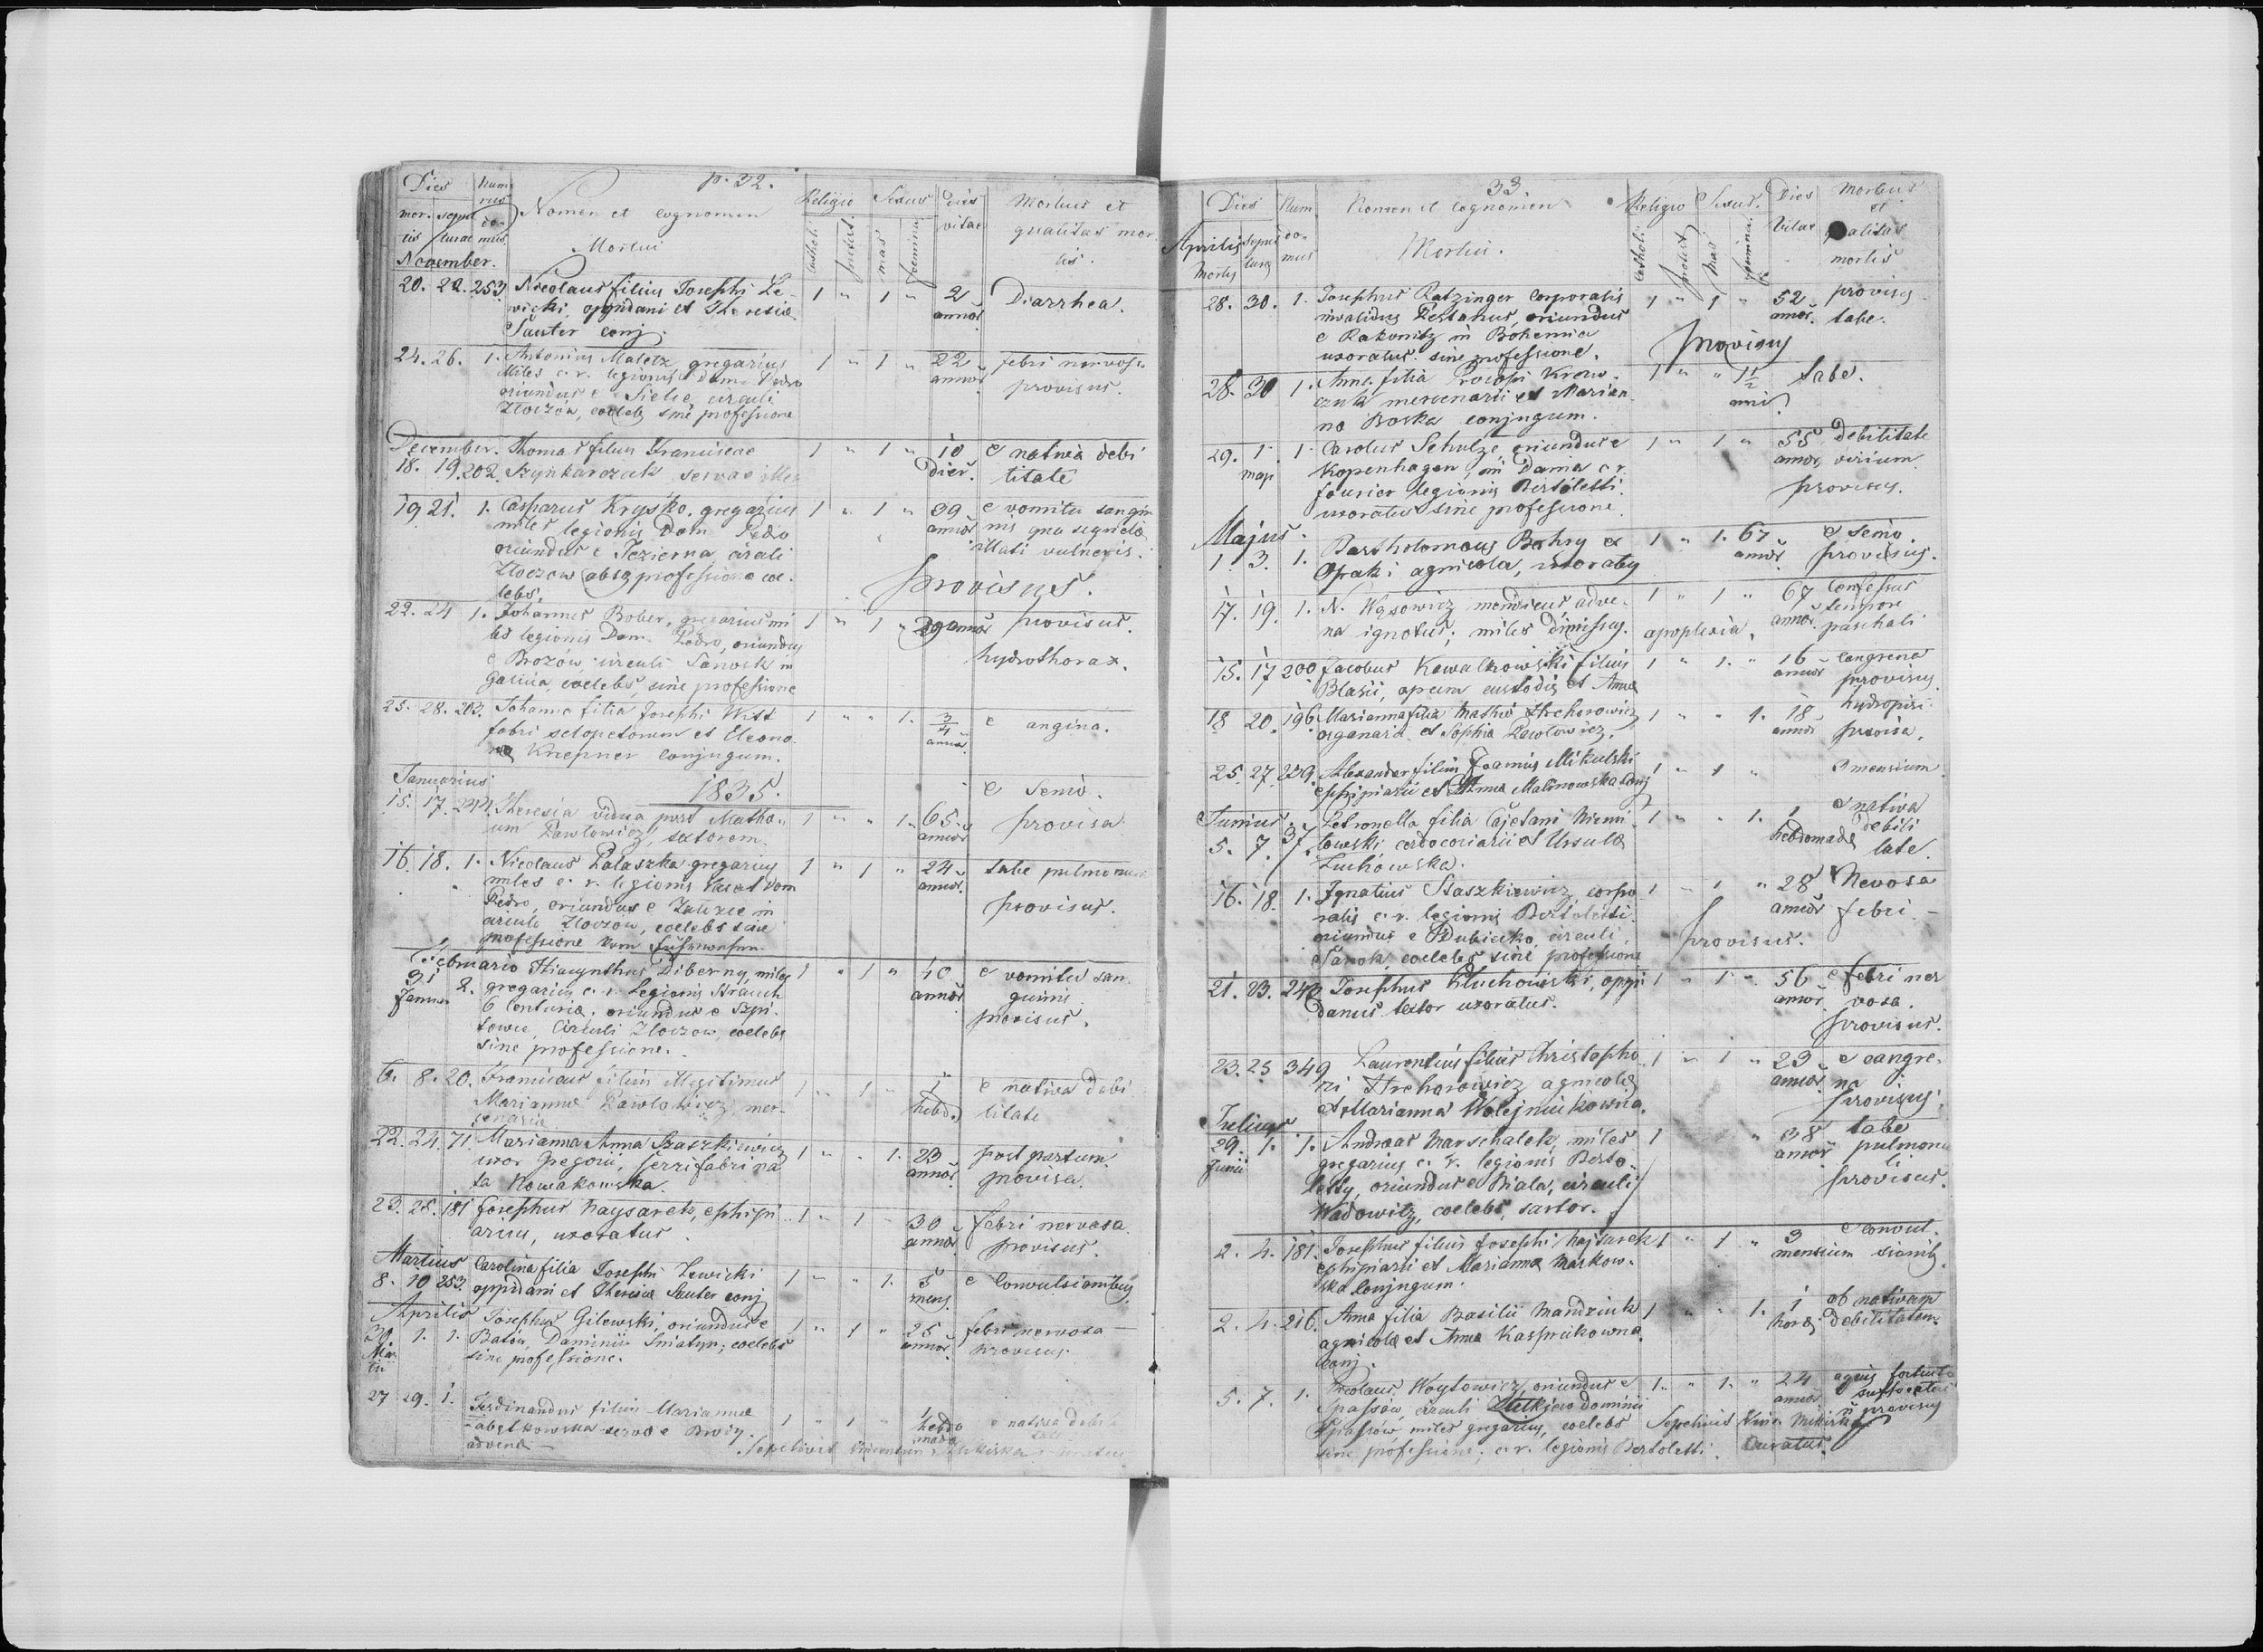 p. 32.
Dies Numerus Nomen et cognomen Religio Sexus Dies Morbus et
mortis sepulturae domus Mortui cathol. protest. mas foemina vitae qualitas mortis.
November.
20. 22. 253 Nicolaus filius Josephi Le- 1 " 1 " 2 Diarrhea.
wicki, oppidani et Theresiae annor.
Sauter conj.
24. 26. 1. Antonius Maletz gregarius 1 " 1 " 22 febri nervosa
Miles c. r. legionis Dom Pedro annor provisus.
oriundus e Sielec circuli
Złoczów, coelebs sine professione
December. Thomas filius Franciscae 1 " 1 " 10 e nativa debi
18. 19. 202. Szynkarczuk servae Dier. litate
19 21. 1. Casparus Kryśko, gregarius 1 " 1 " 39 e vomitu sangui
miles legionis Dom Pedro annor nis
oriundus e Jezierna circuli illati vulneris.
Zloczow absq professione coe-
lebs. provisus.
22. 24 1. Johannes Bober, gregarius mi 1 " 1 " 29 annor provisus.
les legionis Dom. Pedro, oriundus hydrothorax.
e Brozów circuli Sanock in
Galicia, coelebs, sine professione
25. 28. 203. Johanna filia Josephi Witt 1 " " 1. 3/4 e angina.
fabri sclopetorum et Eleono- anni
ra Knepner conjugum.
Januarius 1835. e Senio.
15. 17. Theresia vidua post Mathe- 1 " " 1. 65 provisa
um Pawlowicz, sutorem. annor
16. 18. 1. Nicolaus Palaszka gregarius 1 " 1 " 24 tabe pulmonum
miles c. r. legionis Dom annor.
Pedro, oriundus e in provisus.
circuli Zloczow, coelebs sine
professione
Februario Hiacynthus Diberny, miles 1 " 1 " 40 e vomitu san
31 2. gregarius c. r. Legionis Strauch annor guinis
Januar 6 Centuriae, oriundus e provisus.
Circuli Zloczow, coelebs
sine professione.
6. 8. 20. Franciscus filius illegitimus 1 " 1 " 1 e nativa debi
Mariannae Pawlowicz, mer- hebd. litate
cenaria
22. 24. 71. Marianna Anna Szaszkiewicz 1 " " 1. 23 post partum
uxor Gregorii, ferrifabri na annor provisa.
ta Nowakowska.
23. 25. 181 Josephus Naysarek, ephipi- 1 " 1 " 30 febri nervosa
arius, uxoratus. annor provisus.
Martius Carolina filia Josephi Lewicki 1 " " 1. 5 e Convulsionibus
8. 10 253. oppidani et Theresiae Sauter conj mens.
Aprilis Josephus Gilewski, oriundus e 1 " 1 " 25 febri nervosa
30 1. 1. Dominii Sniatyn, coelebs annor provisus.
Mar
tii sine professione.
27 29. 1. Ferdinandus filius Mariannae 1 " 1 " 1 e nativa debi
servae e Brody hebdo litate
advena mada
Sepelivit Vincentius
33.
Dies Num Nomen et cognomen Religio Sexus. Dies Morbus
et
Aprilis sepul do- Mortui. Cathol. protest mas foemina vitae qualitas
Mortis turae mus mortis
28. 30. 1. Josephus Ratzinger Corporalis 1 " 1 " 52 provisus
invalidus Pestanus, oriundus annor. tabe.
e Rakonitz in Bohemia
uxoratus sine professione. provisus
28. 30 1. Anna filia Procopi Kraw- 1 " " 1 1/2 tabe.
czuk mercenarii et Marian- anni
na Boska conjugum.
29. 1. 1. Carolus Schulze, oriundus e 1 " 1 " 55 debilitate
maji Kopenhagen, in Dania c. r. annor virium
fourier legionis Bertoletti provisus.
uxoratus sine professione.
Majus.
1. 3. 1. Bartholomaeus Bahry ex 1 " 1. 67 e senio.
Opaki agricola, uxoratus annor provisus.
17. 19. 1. N. Wąsowicz mendicus adve- 1 " 1 " 67 confessus
na ignotus, miles dimissus. apoplexia. annor. tempore
paschali
15. 17 200 Jacobus Kowalkowski filius 1 " 1. " 16 cangrena
Blasii, apum custodis et Annae annor provisus
18 20. 196. Marianna filia Mathei Strchorowicz 1 " " 1. 18 hydropisi
organarii et Sophia Pawlowicz. annor provisa.
25. 27. 239. Alexander filius Joannis Mikulski 1 " 1 " 3 mensium
ephipiarii et Annae Malinowska conj
Junius. Petronella filia Cajetani Niemi- 1 " " 1. 1 e nativa
5. 7. 37. towski cerdoconiarii et Ursula hebdomadae debili
Zuchowska. tate.
16. 18. 1. Ignatius Staszkiewicz, corpo- 1 " 1 " 28 Nevosa
ralis c. r. legionis Bertoletti annor febri
oriundus e Dubiecko, circuli provisus.
Sanok, coelebs sine professione
21. 23. 240 Josephus Kluchowski, oppi- 1 " 1 " 56 e febri ner
danus textor uxoratus. annor vosa.
provisus.
23. 25 349 Laurentius filius Christopho- 1 " 1 " 23 e cangre-
ri Strchorowicz agricolae annor na
et Marianna Wolejniukowna. provisus.
Julius
29. 1. 1. Andreas Marschalek, miles 1 " 38 tabe
Junii gregarius c. r. legionis Berto- annor pulmona
letty, oriundus e Biala, circuli li
Wadowitz, coelebs, sartor. provisus.
2. 4. 181. Josephus filius Josephi Najsarek 1 " 1 " 3 e convul
ephipiarii et Marianna Markow- mensium sionib
ska conjugum.
2. 4. 216. Anna filia Basilii Mandziuk 1 " " 1. 1 ob nativam
agricolae et Anna Kasprukowna horae debilitatem.
conj.
5. 7. 1. Nicolaus Woytowicz, oriundus e 1. " 1. " 24 aquis fortuito
Spassów, circuli Zolkiew dominii annor suffocatus
Spassów, miles gregarius, coelebs Sepelivit Vinc. provisus
sine professione, c. r. legionis Bertoletti. Curatus.